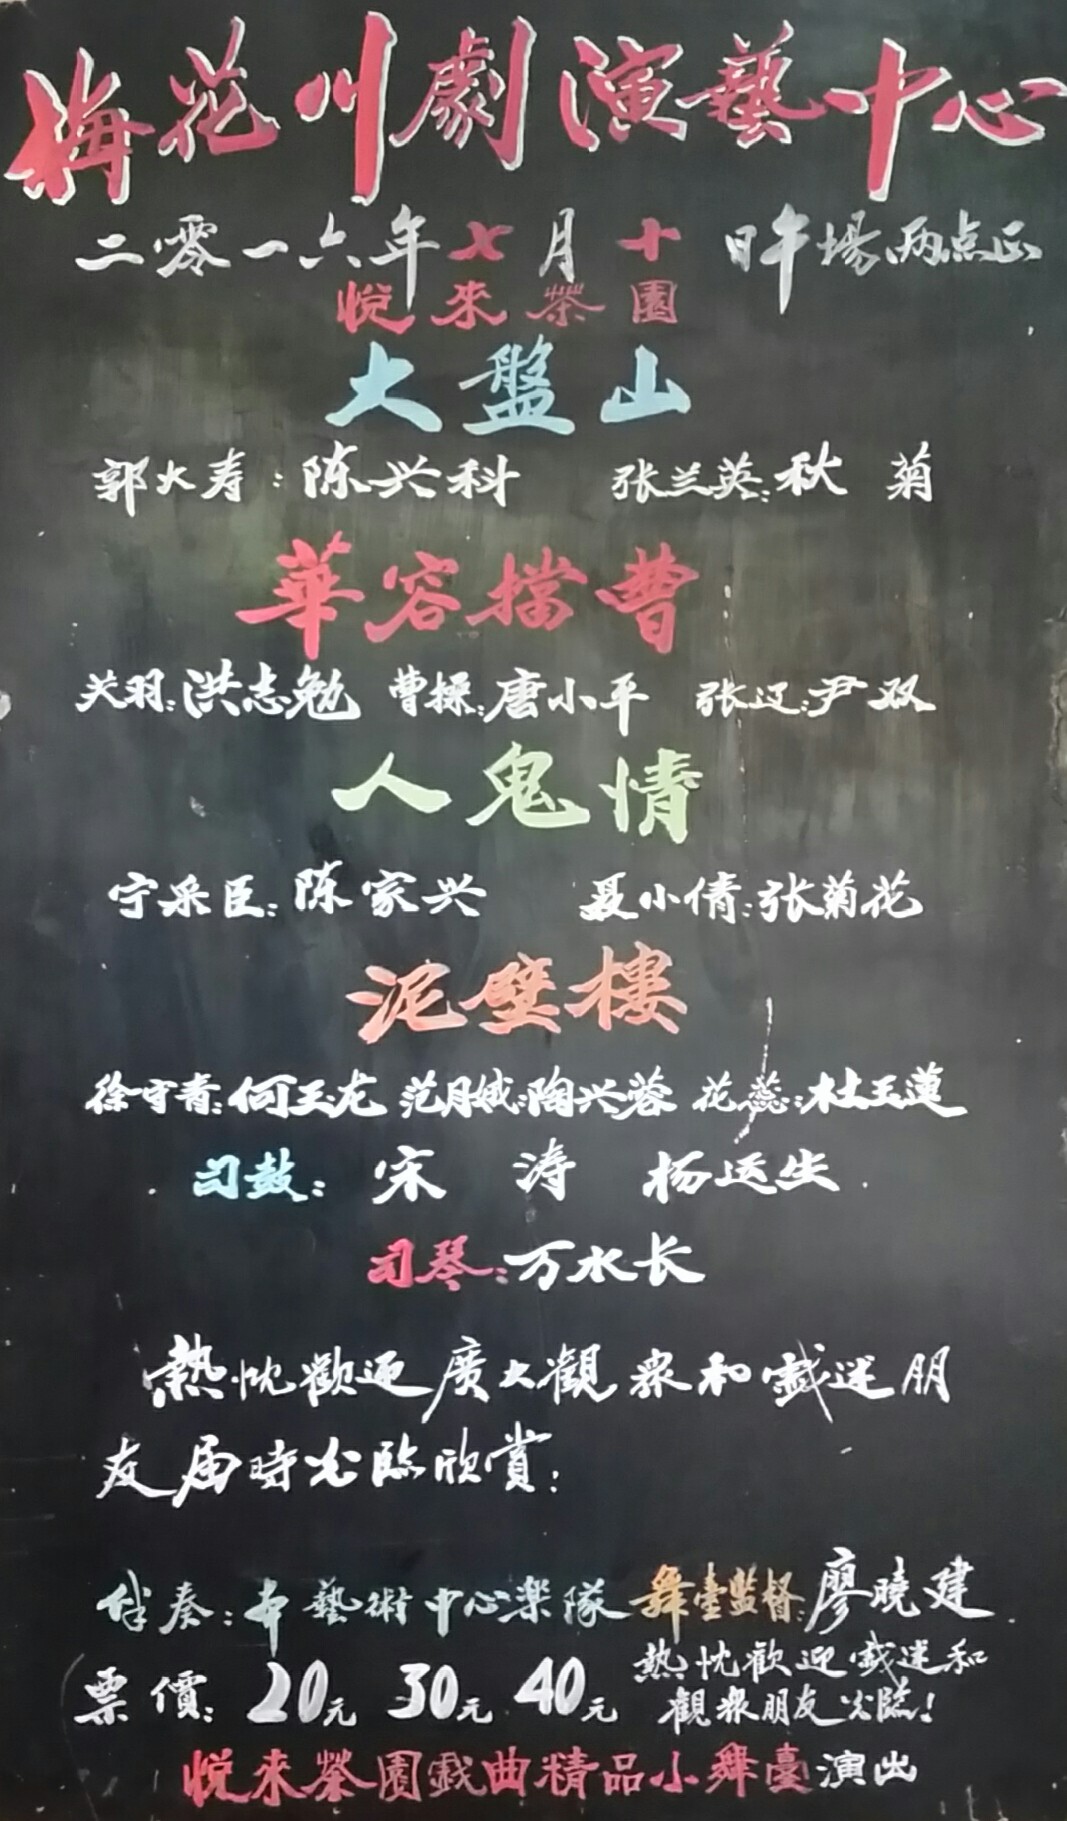 梅花川劇演藝中心
二零一六年七月十日午場两点正
悦來茶園
大盤山
郭大寿:陈兴科 张兰英:秋菊
華容擋曹
关羽:洪志勉 曹操:唐小平 张辽:尹双
人鬼情
宁采臣:陈家兴 聂小倩:张菊花
泥壁樓
徐守青:何玉龙 范月娥:陶兴蓉 花蕊:杜玉蓮
司鼓:宋涛 杨运生
司琴:万水长
熱忱歡迎廣大觀衆和戲迷朋
友届時光臨欣賞:
伴奏:本藝術中心樂隊 舞臺监督:廖曉建
票價:20元 30元 40元 熱忱歡迎戲迷和
觀衆朋友光臨!
悦來茶園戲曲精品小舞臺演出